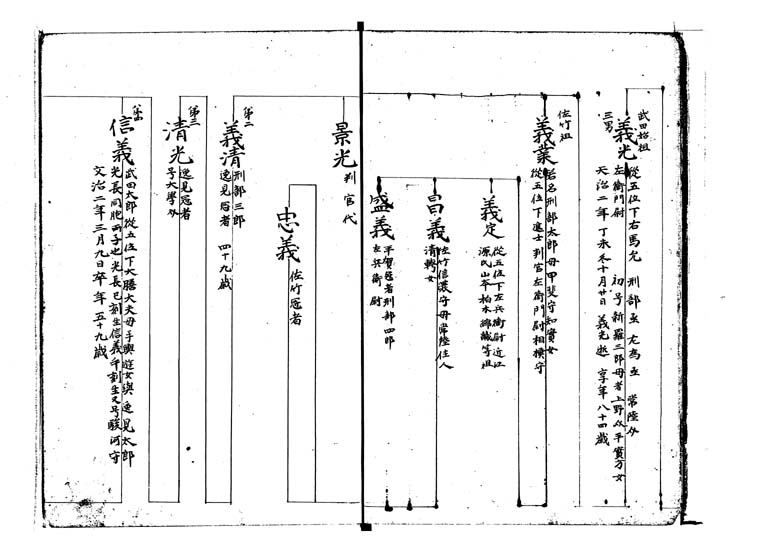 武田始祖
三男
義光
從五位下右馬允 刑部丞 左為丞 常陸外
左衛門尉 初号新羅三郎母者上野介平實方女
天治二年丁未冬十月廿日義光逝 享年八十四歳
佐竹祖
義業
若名刑部太郎母甲斐守知實女
從五位下進士判官左衛門尉相模守
義定
從五位下左兵衛尉近江
源氏山本柏木錦織等祖
昌義
佐竹信濃守母常陸住人
清轉女
盛義
平賀冠者刑部四郎
左兵衛尉
景光
判官代
忠義
佐竹冠者
第二
義清
刑部三郎
逸見冠者 四十九歳
第三
清光
逸見冠者
号大學介
信義
武田太郎從五位下大膳大夫母手輿遊女與逸見太郎
光長同胞兩子也光長巳刻生信義午刻生又号駿河守
文治二年三月九日卒年五十九歳